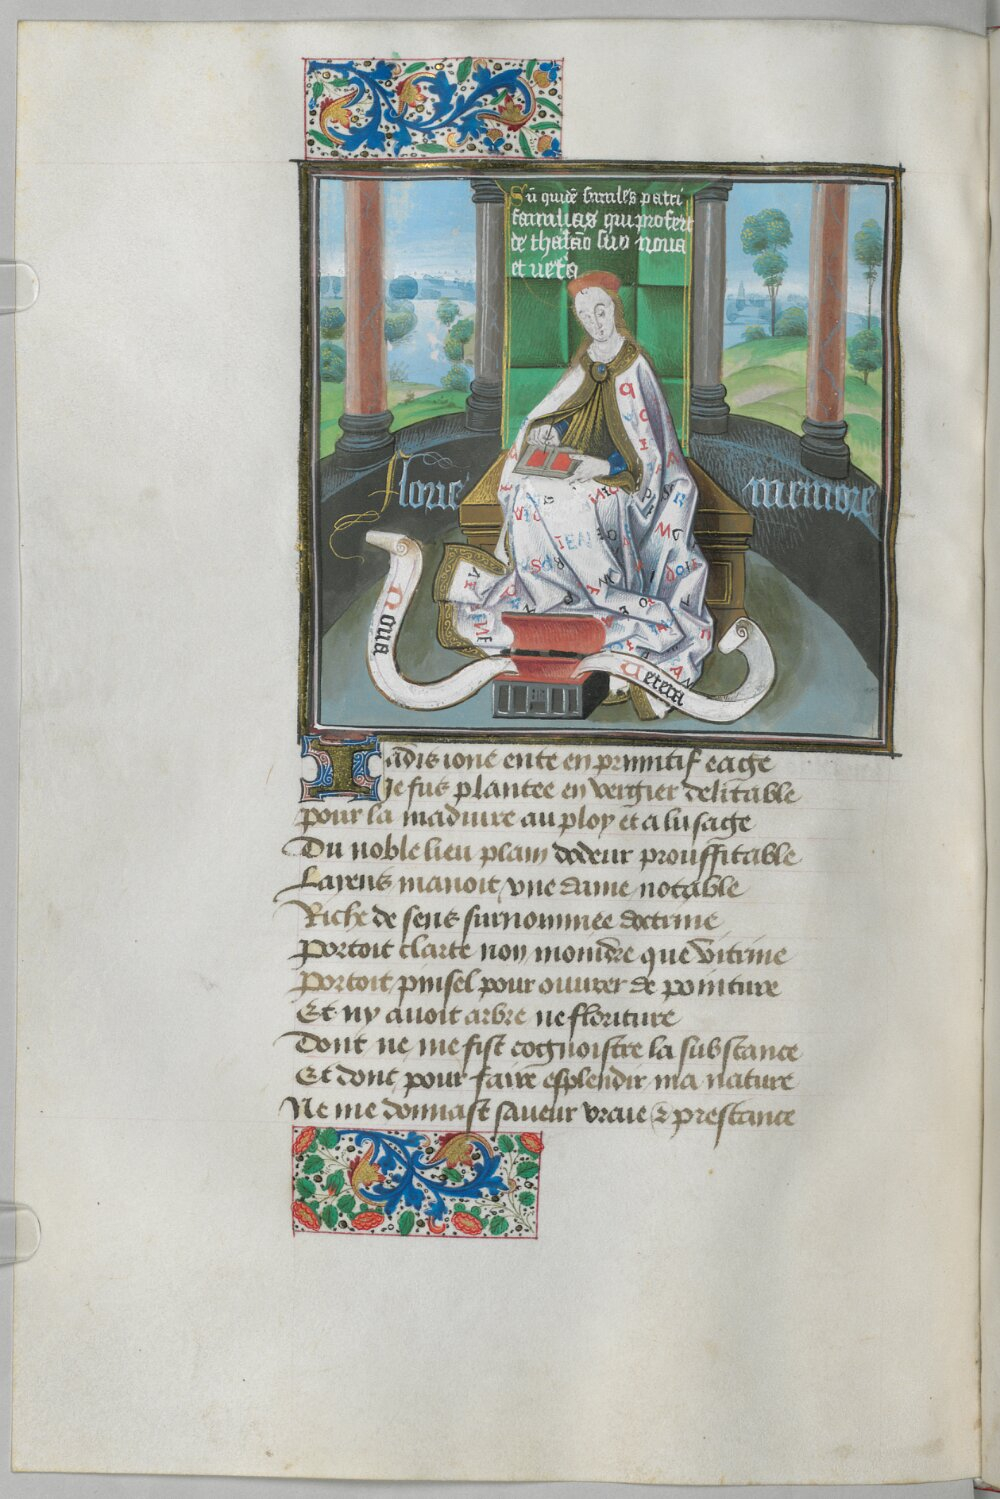 Sū quidē similes patri
familias qui profert
de thesaō suo noua
et uetā
Florie memoire
Noua
Uetera
Iadis ione ente en primitif eage
Je fus plantee en vergier delitable
pour la maduire au ploy et a lusage
Du noble lieu plain dodeur prouffitable
Layens manoit vne dame notable
Riche de sens surnommee doctrine
portoit clarte non moindre que vitrine
portoit pinsel pour ouurer de pointure
Et ny auoit arbre ne floriture
Dont ne me fist cognoistre la substance
Et dont pour faire esplendir ma nature
Ne me donnast saueur vraie & prestance